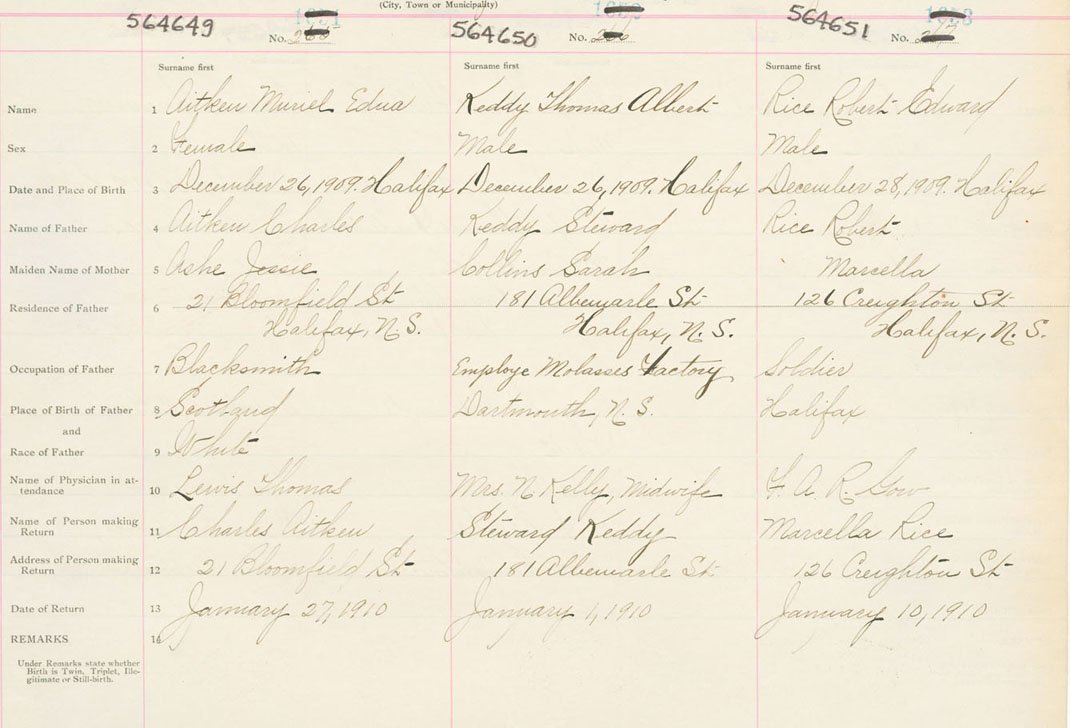 (City, Town or Municipality)
564649 No. 564650 No. 564651 No.
Surname first Surname first Surname first
Name 1 Aitken Muriel Edna Keddy Thomas Albert Rice Robert Edward
Sex 2 Female Male Male
Date and Place of Birth 3 December 26, 1909. Halifax December 26, 1909. Halifax December 28, 1909. Halifax
Name of Father 4 Aitken Charles Keddy Steward Rice Robert
Maiden Name of Mother 5 Ashe Jessie Collins Sarah Marcella
Residence of Father 6 21 Bloomfield St 181 Albemarle St 126 Creighton St
Halifax, N. S. Halifax, N. S. Halifax, N. S.
Occupation of Father 7 Blacksmith Employe Molasses Factory Soldier
Place of Birth of Father 8 Scotland Dartmouth, N. S. Halifax
and
Race of Father 9 White
Name of Physician in at-
tendance 10 Lewis Thomas Mrs. N Kelly, Midwife F. A. R. Gow
Name of Person making
Return 11 Charles Aitken Steward Keddy Marcella Rice
Address of Person making
Return 12 21 Bloomfield St 181 Albemarle St 126 Creighton St
Date of Return 13 January 27, 1910 January 1, 1910 January 10, 1910
REMARKS 14
Under Remarks state whether
Birth is Twin, Triplet, Ille-
gitimate or Still-birth.